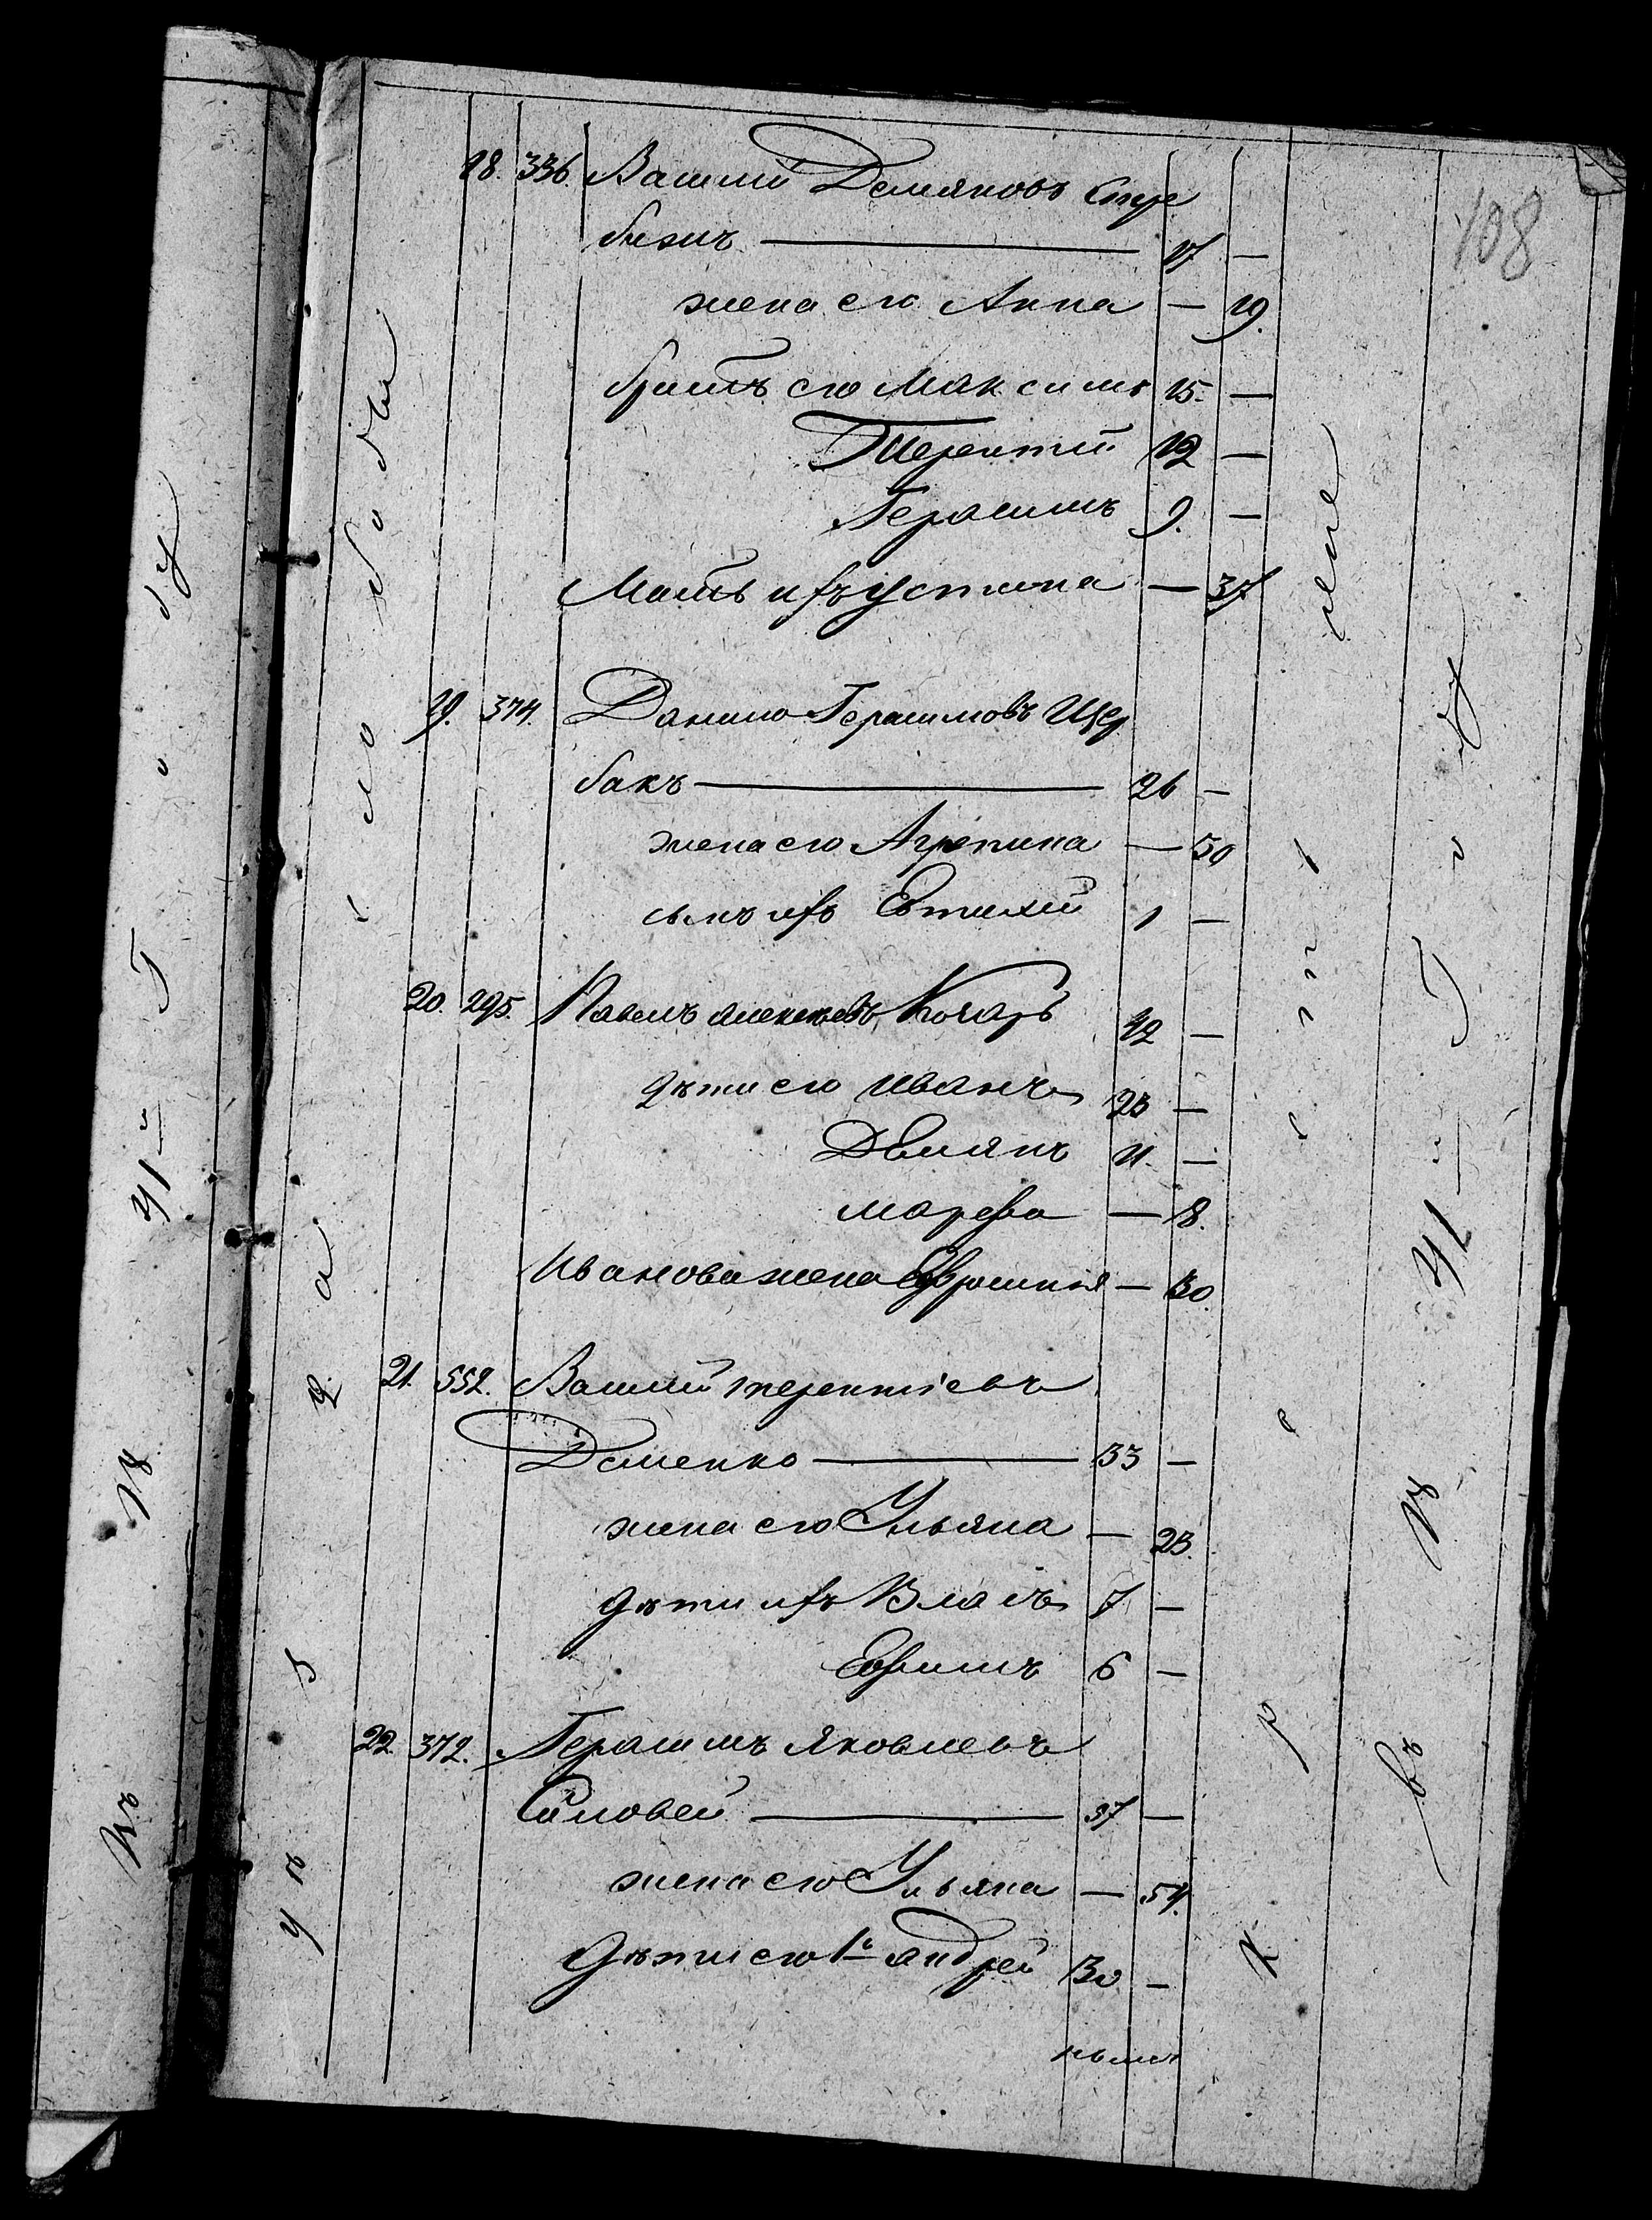 108
18. 336. Василій Демяновъ Стре
бижъ — 17 —
жена его Анна — 19.
братъ его Максимъ 15. —
Терентій 12 —
Герасимъ 9. —
Мать ихъ Устина — 37
19. 374. Данило Герасимовъ Щер
бакъ — 26 —
жена его Агрепина — 30
сынъ ихъ Евтихій 1 —
20. 295. Павелъ Алексѣевъ Кочаръ 42 —
дѣти его Иванъ 23 —
Демянъ 11. —
Марфа — 8.
Иванова жена Евфросинія — 30.
21. 552. Василій Терентіевъ
Деменко — 33 —
жена его Ульяна — 23.
дѣти ихъ Власъ 7 —
Ефимъ 6 —
22. 372. Герасимъ Яковлевъ
Соловей — 57 —
жена его Ульяна — 54.
дѣти его 1й Андрей 30 —
уѣзда слободы
въ 1841м Году
въ 1841м Году